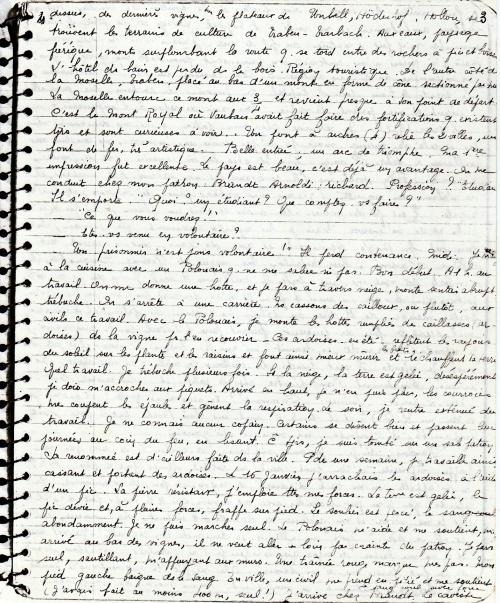 dessus, des derniers vignes, le plateau de Starkenburg
trouvent les terrains de culture de Traben-Trarbach. Aux eaux, paysage
féerique, monts surplombant la route q. se tord entre des rochers à pic et boisés
L'hôtel des bains est perdu de le bois. Région touristique. De l'autre côté de
la Moselle, Traben, placé au bas d'un mont en forme de cône sectionné par
La Moselle entoure ce mont aux 3/4 et revient presque à son point de départ
C'est le Mont Royal où Vauban avait fait faire des fortifications q. existent
tjrs et sont curieuses à voir. Un pont à arches (5) relie les 2 villes, un
pont de fer, très artistique. Belle entrée : un arc de triomphe. Ma 1ère
impression fut excellente. Le pays est beau, c'est déjà un avantage. On me
conduit chez mon patron Brandt Arnoldi Richard. Profession ? "Etudiant"
Il s'emporte "Quoi ? un étudiant ? Que comptez vs faire ?"
"Ce que vous voudrez !"
- Etes vs venu en volontaire ?
Un prisonnier n'est jms volontaire !" Il perd contenance. Midi. Je
à la cuisine avec un Polonais q. ne me salue ni pas. Bon début. A 1 h. au
travail. On me donne une hotte, et je pars à travers neige, monte sentier abrupt
trébuche. On s'arrête à une carrière. Ns cassons des cailloux, ou plutôt,
ce travail. Avec le Polonais, je monte les hottes, remplies de caillasses, ar-
doises) de la vigne pr l'en recouvrir. Ces ardoises en été reflètent les rayons
du soleil sur les plants et les raisins et font ainsi mieux mûrir et réchauffent la terre
Quel travail. Je trébuche plusieurs fois. A la neige, la terre est gelée, désespérément
je dois m'accrocher aux piquets. Arrivé en haut, je n'en puis plus, les courroies
me coupent les épaules et gênent la respiration. Le soir, je rentre exténué du
travail. Je ne connais aucun copain. Certains se disent bien et passent leurs
journées au coin du feu, en lisant. C tjrs, je suis tombé sur un sale patron
La renommée est d'ailleurs faite ds la ville. Pdt une semaine, je travaille ainsi
cassant et portant des ardoises. Le 15 Janvier j'arrachais les ardoises à l'aide
d'un pic. La pierre résistant, j'emploie ttes mes forces. La terre est gelée, le
pic dévie et, à pleines forces, frappe sur pied. Le soulier est percé, le sang coule
abondamment. Je ne puis marcher seul. Le Polonais m'aide et me soutient, m.
arrivé au bas des vignes, il ne veut aller + loin par crainte du patron. Je pars
seul, sautillant, m'appuyant aux murs. Une traînée rouge marque mes pas. Mon
pied gauche baigne ds le sang. En ville, un civil me prend en pitié et me soutient
(J'avais fait au moins 400 m, seul !) J'arrive chez